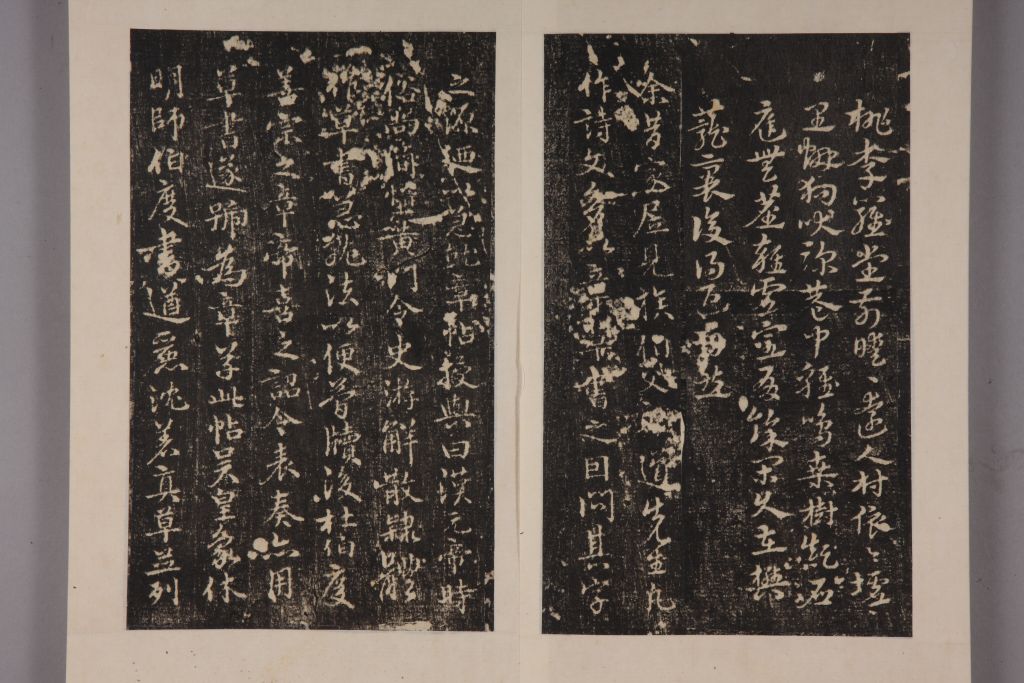 桃李羅堂前曖〻遠人村依〻墟
里煙狗吠深巷中雞鳴桑樹顛
庭無塵雜虛室有餘閑久在樊
籠裏復得返自然
余昔家居見族
先生凡
作詩文
書之因問其字
之源
章帖授與曰漢元帝時
俗尚簡 黃門令史游解散隸體
作草書急就法以便簡牘後杜伯度
善宗之章帝喜之詔令表奏亦用
草書遂號為章草此帖吳皇象休
明師伯度書遒
沈著真草並列